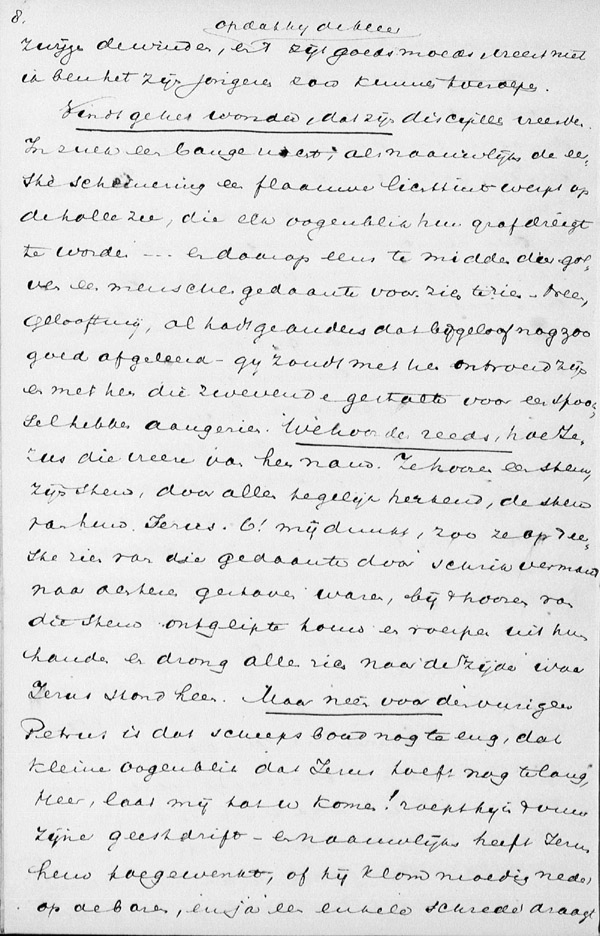 8.
opdat hij de bleef
zwijge de winden, en 't zijt goedsmoeds, vreest niet
ik ben het zijn jongeren eens kunne toeroepe.
Vindt ge het wonder, dat zijn discipelen vreesden.
In zulk een bange nacht, als naauwlijks de ee-
ste schemering een flaauwe lichttint werpt op
de holle zee, die elk oogenblik hun graf dreigt
te worden --- en daarop eens te midden dier gol-
ven een menschengedaante voor zich te zien. Neen,
gelooft mij, al hadt ge anders dat bijgeloof nog zoo
goed afgeleerd - gij zoudt met hen ontroerd zijn
en met hen die zwevende gestalte voor een spook-
sel hebben aangezien. We hoorden reeds, hoe Je-
zus die vrees van hen nam. Ze hooren een stem,
zijn stem, door allen tegelijk herkend, de stem
van hun Jezus. O! mij dunkt, zoo ze op 't ee-
ste zien van die gedaante door schrik vermand
naar achteren geschoven waren, bij 't hooren van
die stem ontglipte touw en roeper uit hun
handen en drong alles zich naar de zijde waar
Jezus stond heen. Maar neen voor den vurigen
Petrus is dat scheepsboord nog te eng, dat
kleine oogenblik dat Jezus toeft nog te lang,
Heer, laat mij tot u komen! roept hij in 't vuur
zijne geestdrift - en naauwlijks heeft Jezus
hem toegewenkt, of hij klom moedig neder
op de baren, en ja een enkele schrede draagt